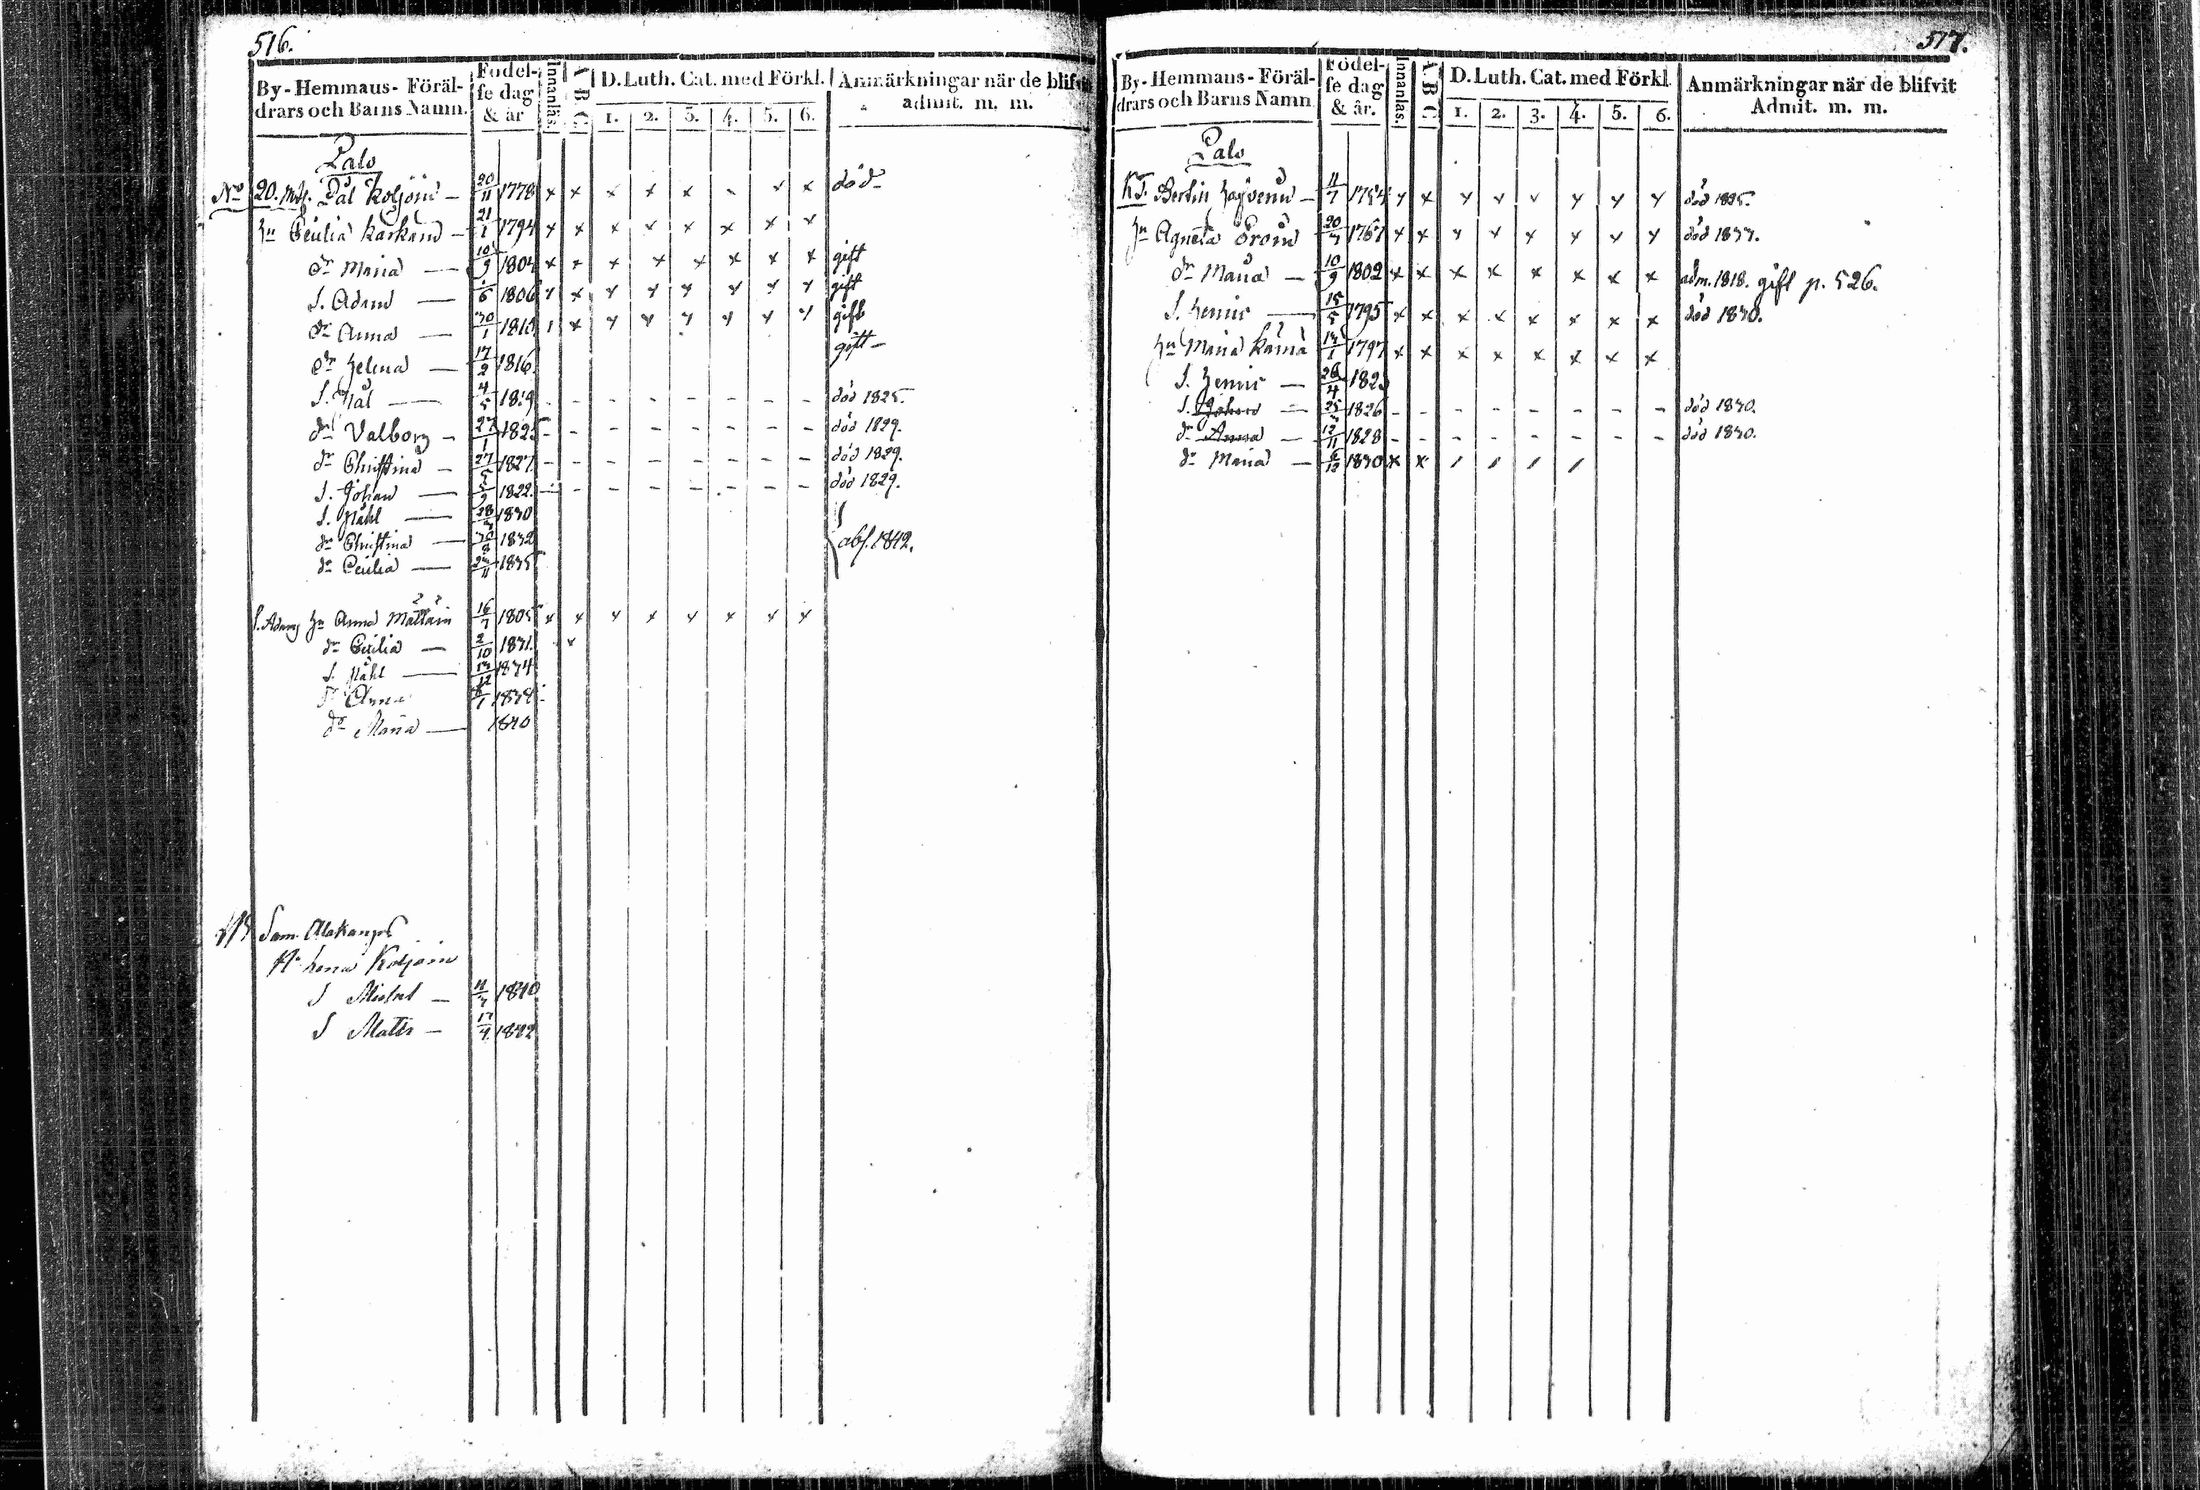 516.
By-Hemmans-Föräl-
drars och Barns Namn.
Födel-
se dag
& år
Innanläs.
A B C
D. Luth. Cat. med Förkl.
1. 2. 3. 4. 5. 6.
Anmärkningar när de blifvit
admit. m. m.
Palo
No 20. Pål Koljoin — 20/11 1778 x x x x x x x död
hu Cecilia Karkain — 21/1 1794 x x x x x x x x
dr Maria — 10/9 1804 x x x x x x x x gift
S. Adam — /6 1806 x x x x x x x x gift
dr Anna — 30/1 x x x x x x x gift
dr Helena — 17/2 1816. gift —
S. Pål — 4/5 18.9 - - - - - - - död 1825.
dr Valborg — 27/1 - - - - - - - död 1829.
dr Christina — 27/5 1827 - - - - - - - död 1829.
S. Johan — 5/9 1822. - - - - - - - död 1829.
S. Påhl — 28/3 1830
dr Christina — 30/8 1832 abs. 1842.
dr Cecilia — 1835
S. Adams hu Anna Mattain 16/7 1805 x x x x x x x x
dr Cecilia — 2/10 1831. x
S. Påhl — 13/12 1834
dr Anna 1838
dr Maria — 1840
Sam. Alakangas
Hu Lena Koljoin
S Michel — 11/3 1840
S Matts — 17/4 1842
517.
By-Hemmans-Föräl-
drars och Barns Namn
Födel-
se dag
& år.
Innanläs.
A B C
D. Luth. Cat. med Förkl.
1. 2. 3. 4. 5. 6.
Anmärkningar när de blifvit
Admit. m. m.
Palo
Bertil — 4/7 1754 x x x x x x x x död 1825.
hu Agneta 20/3 1767 x x x x x x x x död 1833.
dr Maria — 10/9 1802 x x x x x x x x adm. 1818. gift p. 526.
S. Henric — 15/5 1795 x x x x x x x x död 1830.
hu Maria 13/1 1797 x x x x x x x x
S. Henric — 26/4 182
S. Johan — 25/3 1826 - - - - - - - - död 1830.
dr Anna — 12/11 1828 - - - - - - - - död 1830.
dr Maria — 6/12 1830 x x / / / /